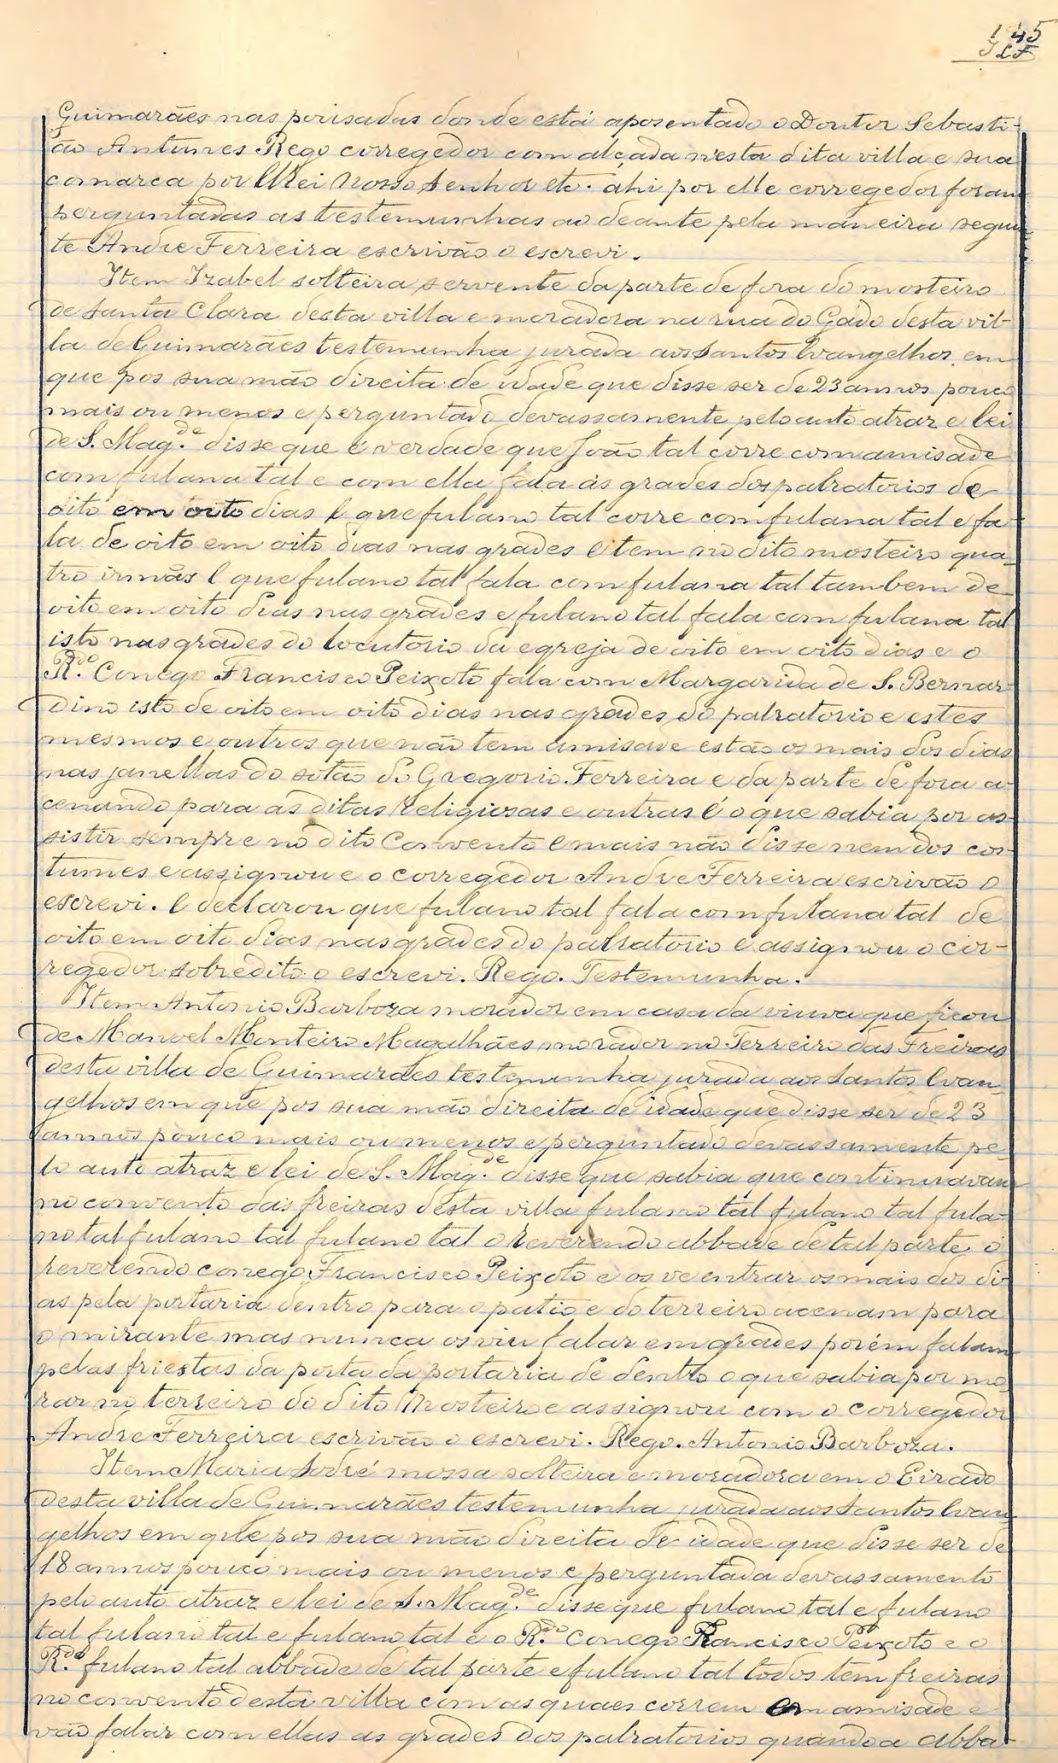 145
Guimarães nas poisadas donde está aposentado o Doutor Sebasti-
ão Antunes Rego corregedor com alçada nesta dita villa e sua
comarca por ElRei Nosso Senhor etc. ahi por elle corregedor foram
perguntadas as testemunhas ao deante pela maneira seguin
te Andre Ferreira escrivão o escrevi.
Item Izabel solteira servente da parte de fora do mosteiro
de Santa Clara desta villa e moradora na rua do Gado desta vil-
la de Guimarães testemunha jurada aos Santos Evangelhos em
que pos sua mão direita de idade que disse ser de 23 annos pouco
mais ou menos e perguntado devassamente pelo auto atraz e lei
de S. Mag.de disse que é verdade que João tal corre com amisade
com fulana tal e com ella fala ás grades dos palratorios de
oito em oito dias E que fulano tal corre com fulana tal e fa
la de oito em oito dias nas grades e tem no dito mosteiro qua-
tro irmãs E que fulano tal fala com fulana tal tambem de
oito em oito dias nas grades e fulano tal fala com fulana tal
isto nas grades do locutorio da egreja de oito em oito dias e o
R.do Conego Francisco Peixoto fala com Margarida de S. Bernar
dino isto de oito em oito dias nas grades do palratorio e estes
mesmos e outros que não tem amisade estão os mais dos dias
nas janellas do sotão do Gregorio Ferreira e da parte de fora a-
cenando para as ditas Religiosas e outras é o que sabia por as-
sistir sempre no dito Convento e mais não disse nem dos cos-
tumes e assignou e o corregedor Andre Ferreira escrivão o
escrevi. E declarou que fulano tal fala com fulana tal de
oito em oito dias nas grades do palratorio e assignou o cor-
regedor sobredito o escrevi. Rego. Testemunha.
Item Antonio Barboza morador em casa da viuva que ficou
de Manoel Monteiro Magalhães morador no Terreiro das Freiras
desta villa de Guimarães testemunha jurada aos Santos Evan-
gelhos em que pos sua mão direita de idade que disse ser de 23
annos pouco mais ou menos e perguntado devassamente pe-
lo auto atraz e lei de S. Mag.de disse que sabia que continuavam
no convento das freiras desta villa fulano tal fulano tal fula-
no tal fulano tal fulano tal o reverendo abbade de tal parte o
reverendo conego Francisco Peixoto e os ve entrar os mais dos di
as pela portaria dentro para o patio e do terreiro acenam para
o mirante mas nunca os viu falar em grades porém falam
pelas friestas da porta da portaria de dentro o que sabia por mo
rar no terreiro do dito Mosteiro e assignou com o corregedor
Andre Ferreira escrivão o escrevi. Rego. Antonio Barboza.
Item Maria Sodré mossa solteira e moradora em o Eirado
desta villa de Guimarães testemunha jurada aos Santos Evan
gelhos em que pos sua mão direita de idade que disse ser de
18 annos pouco mais ou menos e perguntada devassamento
pelo auto atraz e lei de S. Mag.de disse que fulano tal e fulano
tal fulano tal e fulano tal e o R.do Conego Francisco Peixoto e o
R.do fulano tal abbade de tal parte e fulano tal todos têm freiras
no convento desta villa com as quaes correm em amisade e
vão falar com ellas as grades dos palratorios quando a abba-